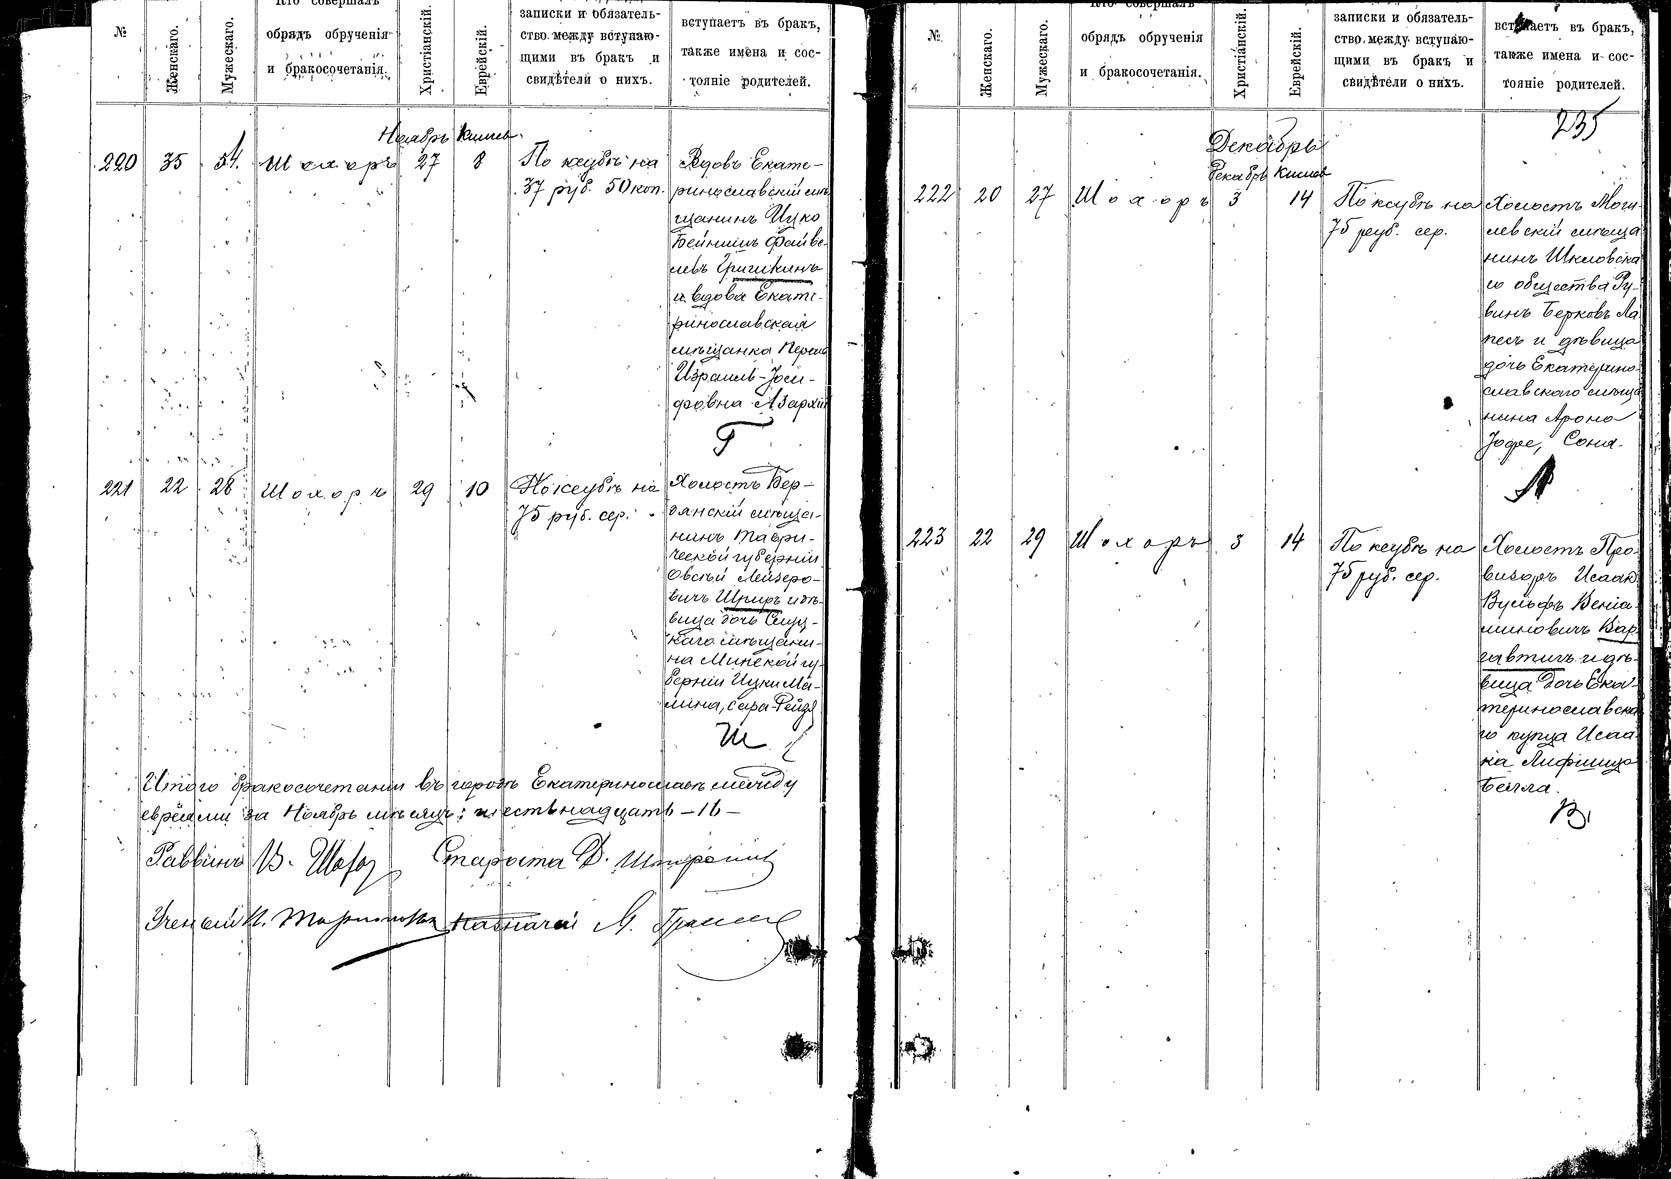 №
Женскаго.
Мужескаго.
Кто совершалъ
обрядъ обрученія
и бракосочетанія.
Христіанскій.
Еврейскій.
записки и обязатель-
ство между вступаю-
щими въ бракъ и
свидѣтели о нихъ.
вступаетъ въ бракъ,
также имена и сос-
тояніе родителей.
Ноябрь Кислев
220 35 54 Шохоръ 27 8
По ксубѣ на
37 руб. 50 коп.
Вдовъ Екате-
ринославскій мѣ-
щанинъ Ицко
Бейнишъ Файве-
левъ Григикинъ
и вдова Екате-
ринославская
мѣщанка
Израиль-Йоси-
фовна
Г
221 22 28 Шохоръ 29 10
По ксубѣ на
75 руб. сер.
Холостъ Бер-
дянскій мѣща-
нинъ Таври-
ческой губерніи
Овсѣй Лейзеро-
вичъ Шпиръ и дѣ-
вица дочь Слуц-
каго мѣщани-
на Минской гу-
берніи Ицки Ма-
лина, Сара-Рейзя
Ш
Итого бракосочетаній въ городѣ Екатеринославѣ между
евреями за Ноябрь мѣсяцъ: шестнадцать -16-
Раввинъ В. Шохор Староста Д.
Ученый И. Казначей М.
№
Женскаго.
Мужескаго.
Кто совершалъ
обрядъ обрученія
и бракосочетанія.
Христіанскій.
Еврейскій.
записки и обязатель-
ство между вступаю-
щими въ бракъ и
свидѣтели о нихъ.
вступаетъ въ бракъ,
также имена и сос-
тояніе родителей.
235
Декабрь
Декабрь Кислев
222 20 27 Шохоръ 3 14
По ксубѣ на
75 руб. сер.
Холостъ Моги-
левскій мѣща
нинъ Шкловска
го общества Ру-
винъ Берковъ Ла
песъ и дѣвица
дочь Екатерино-
славскаго мѣща
нина Арона
Іофе, Соня.
Л
223 22 29 Шохоръ 3 14
По ксубѣ на
75 руб. сер.
Холостъ Про-
визоръ Исаакъ
Вульфъ Веніа-
миновичъ Вар-
гавтигъ и дѣ-
вица дочь Ека-
теринославска
го купца Исаа-
ка Лифшица
Бейла.
В.